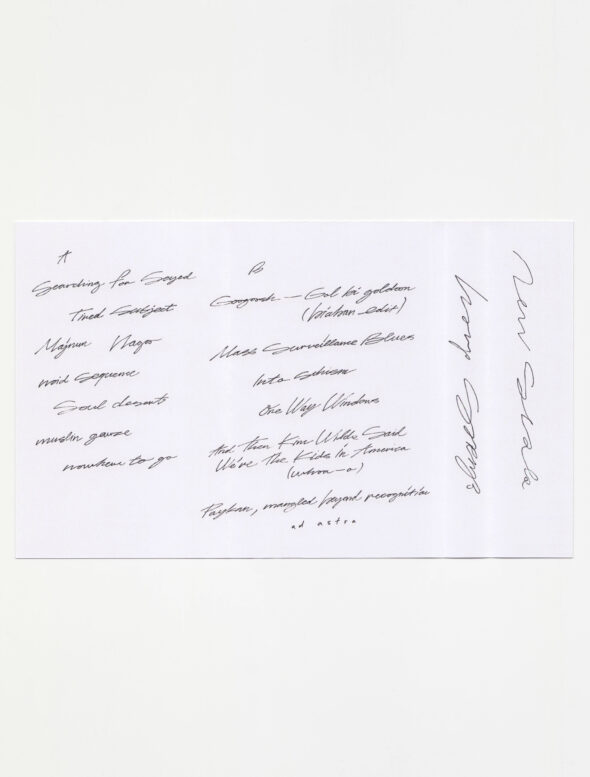 A
Searching for Seyed
Tired Subject
Majnun
void sequence
Soul deserts
muslin gauze
nowhere to go
B
Googoosh — Gol bi goldoon
(biaban edit)
Mass Surveillance Blues
Into Schism
One Way Windows
And Then Kim Wilde Said
We're The Kids In America
(whoa-o)
Paykan, mangled beyond recognition
ad astra
New